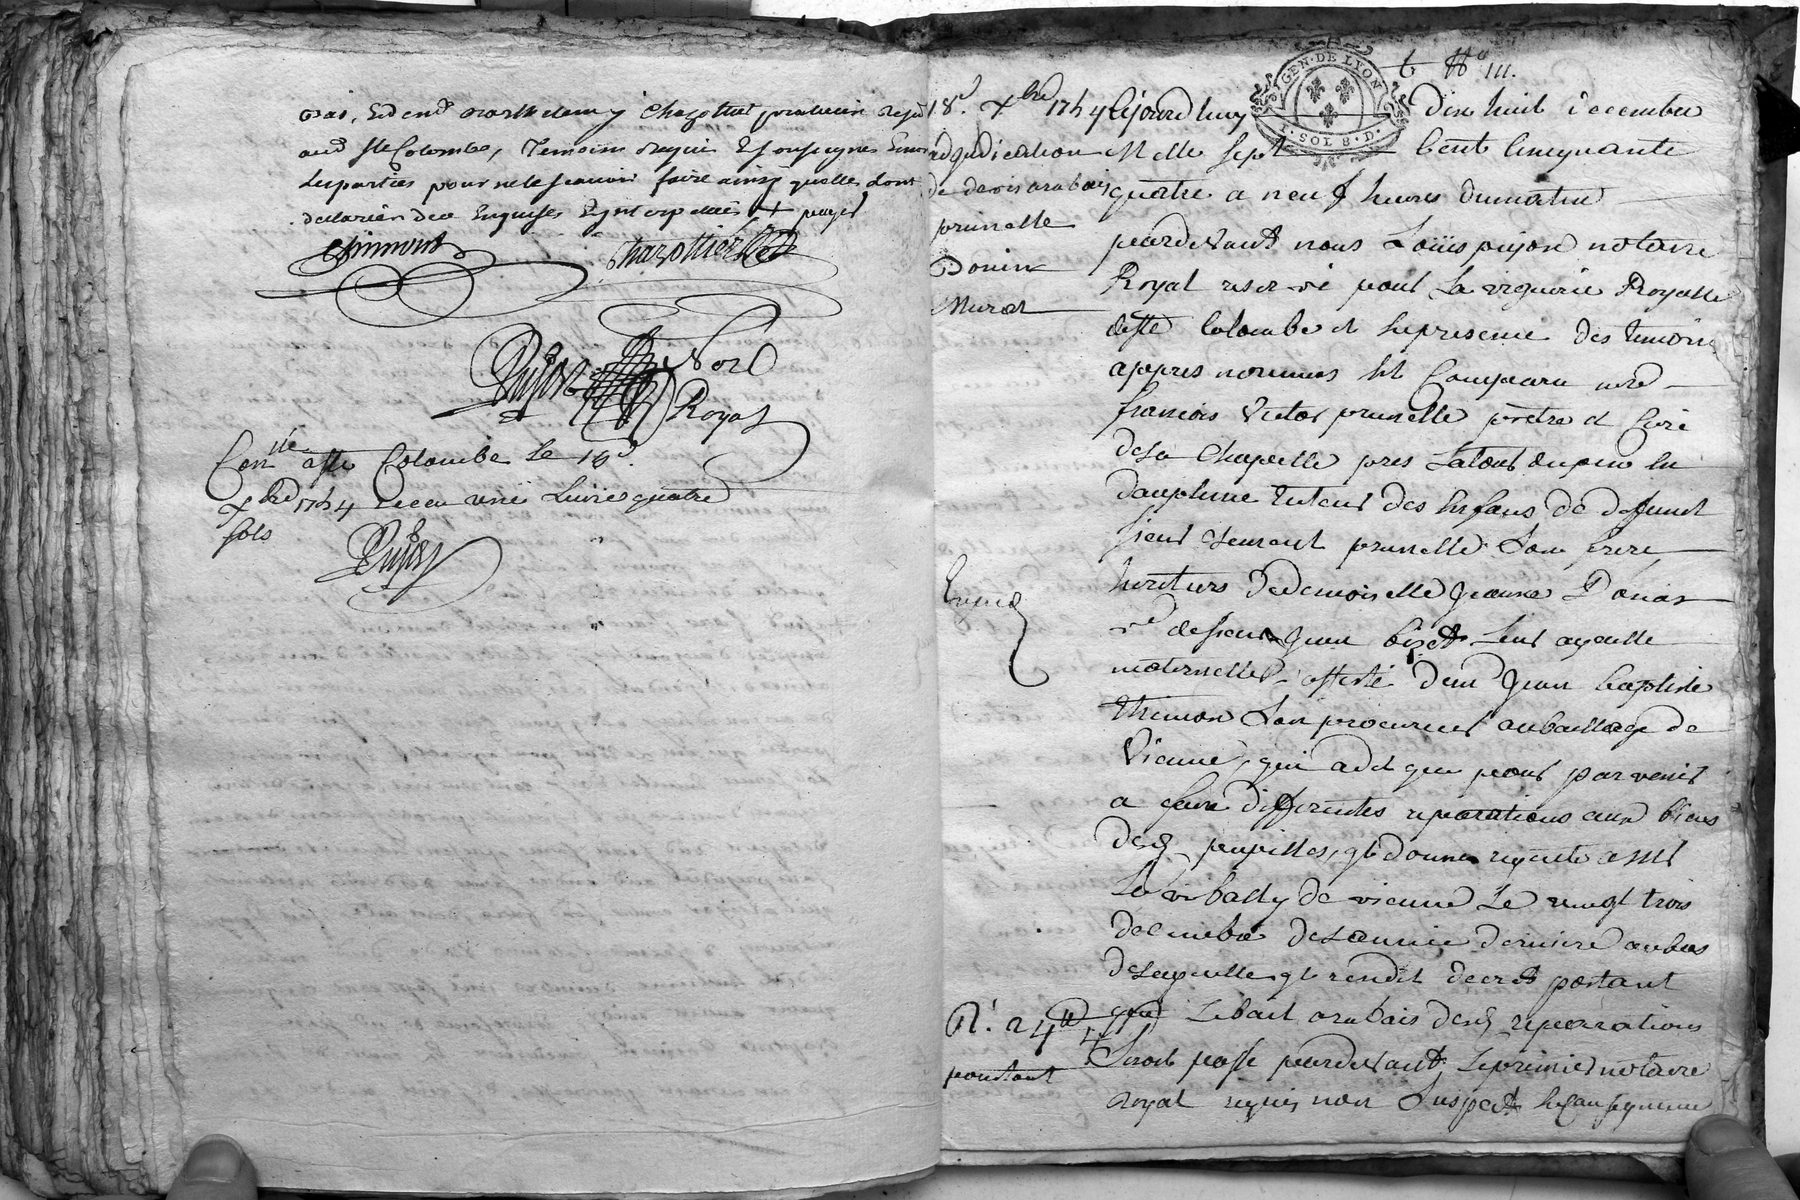 aud ste Colombe, Temoins requis et soussignes
les parties pour ne le scavoir faire ainsy quelles dont
declaré de ce Enquises
Thimont
Chazottier
Pujon No.re
Royal
Con.lle a ste Colombe le 18e.
xbre 1754 Receu une Livre quatre
sols
Pujon
GEN. DE LYON
1. SOL 8. D.
18e. xbre 1754
adjudication
de devis a rabais
prunelle
Donin
Murat
Expédié
Rt. 24 ll
pourtant
Cejourdhuy dix huit decembre
Mille sept Cent Cinquante
quatre a neuf heures du matin
pardevant nous Loüis pujon notaire
Royal reservé pour La viguerie Royalle
de ste Colombe et En presence des temoins
appres nommés Est Comparu
francois victor prunelle pretre et Curé
de La Chapelle pres Latour du pin En
dauphiné Tuteur des Enfans de deffunt
sieur Clement prunelle Son frere
heritiers de demoiselle Jeanne
ve de sieur Jean Leur ayeulle
maternelle, assisté de me Jean Baptiste
Thimon Son procureur au bailliage de
Vienne, qui a dit que pour parvenir
a faire differentes reparations aux biens
desd pupilles, il donna requete a Mr
Le vibally de vienne Le vingt trois
decembre de Lannée derniere au bas
de Laquelle il rendit decret portant
que Le bail a rabais desd reparations
Seroit passé pardevant Le premier notaire
Royal requis non Suspect